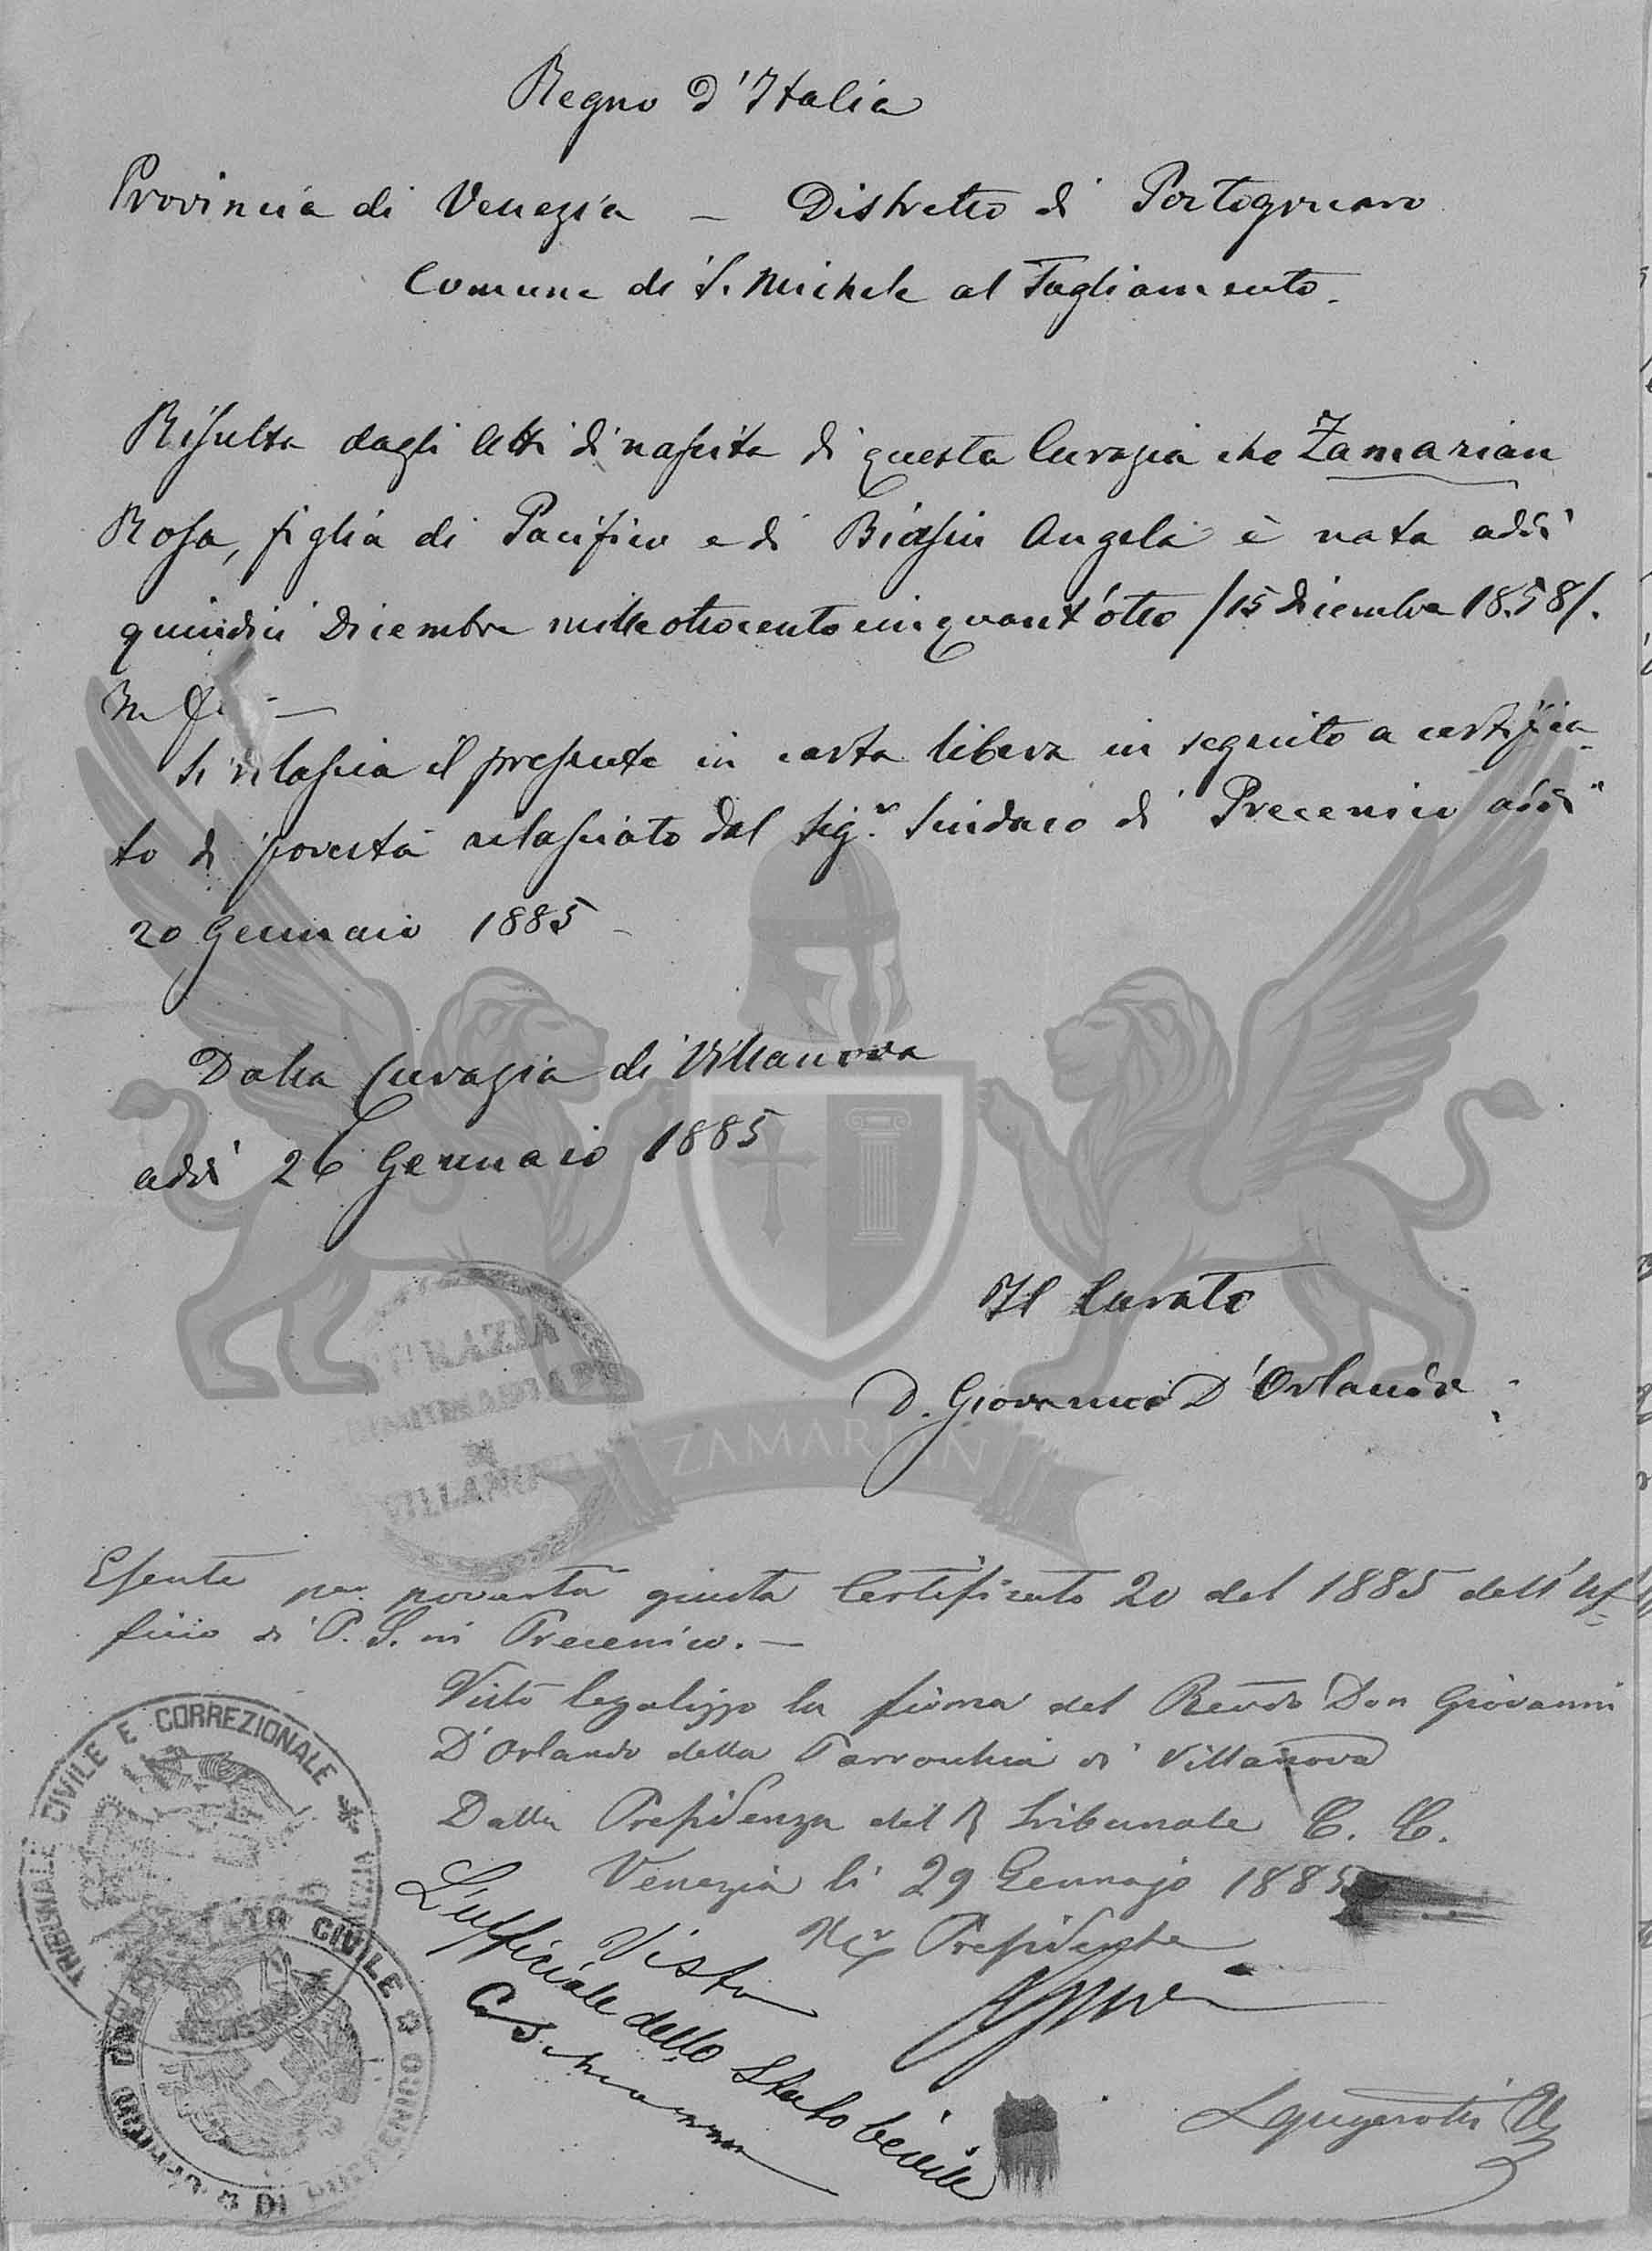 Regno d'Italia
Provincia di Venezia – Distretto di Portogruaro
Comune di S. Michele al Tagliamento.
Risulta dagli Atti di nascita di questa Curazia che Zamarian
Rosa, figlia di Pacifico e di Biasin Angela è nata addì
quindici Dicembre mille ottocento cinquant'otto /15 Dicembre 1858/.
In fe
Si rilascia il presente in carta libera in seguito a certifica
to di povertà rilasciato dal Sigr. Sindaco di Precenico addì
20 Gennaio 1885 –
Dalla Curazia di Villanova
addì 26 Gennaio 1885
Il Curato
D. Giovanni D'Orlando
CURAZIA
DI
VILLANOVA
ZAMARIAN
Esente per povertà giusta Certificato 20 del 1885 dell'Uf
ficio di P. S. in Precenico. –
Visto legalizzo la firma del Revdo Don Giovanni
D'Orlando della Parrocchia di Villanova
Dalla Presidenza del R Tribunale C. C.
Venezia li 29 Gennajo 1885
Presidente
TRIBUNALE CIVILE E CORREZIONALE * VENEZIA
Visto
L'ufficiale dello Stato Civile
UFFICIO DELLO STATO CIVILE * DI